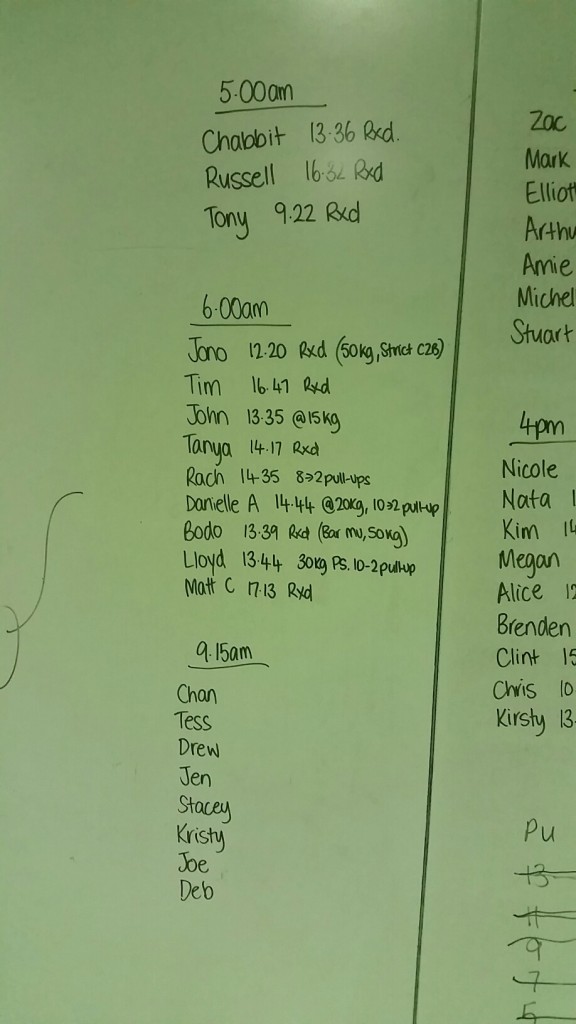 5.00am
Chabbit 13.36 Rxd.
Russell 16.32 Rxd
Tony 9.22 Rxd
6.00am
Jono 12.20 Rxd (50kg, Strict C2B)
Tim 16.47 Rxd
John 13.35 @15kg
Tanya 14.17 Rxd
Rach 14.35 8→2 pull-ups
Danielle A 14.44 @20kg, 10→2 pull-up
Bodo 13.39 Rxd (Bar MU, 50kg)
Lloyd 13.44 30kg PS. 10-2 pull-up
Matt C 17.13 Rxd
9.15am
Chan
Tess
Drew
Jen
Stacey
Kristy
Joe
Deb
Zac
Mark
Elliott
Arthu
Amie
Michel
Stuart
4pm
Nicole
Nata 1
Kim 14
Megan
Alice 12
Brenden
Clint 15
Chris 10
Kirsty 13.
PU
13
11
9
7
5